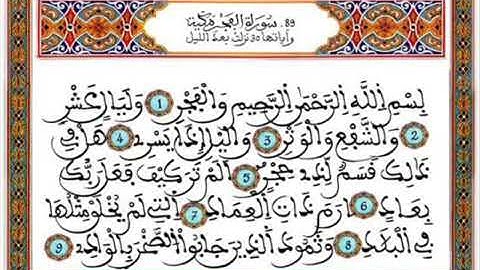 89 سورة الفجر مكية
وآياتها نزلت بعد الليل
بِسْمِ اللَّهِ الرَّحْمَٰنِ الرَّحِيمِ وَالْفَجْرِ 1 وَلَيَالٍ عَشْرٍ
2 وَالشَّفْعِ وَالْوَتْرِ 3 وَالَّيْلِ إِذَا يَسْرِ 4 هَلْ فِي
ذَٰلِكَ قَسَمٌ لِّذِي حِجْرٍ 5 أَلَمْ تَرَ كَيْفَ فَعَلَ رَبُّكَ
بِعَادٍ 6 إِرَمَ ذَاتِ الْعِمَادِ 7 الَّتِي لَمْ يُخْلَقْ مِثْلُهَا
فِي الْبِلَٰدِ 8 وَثَمُودَ الَّذِينَ جَابُوا الصَّخْرَ بِالْوَادِ 9